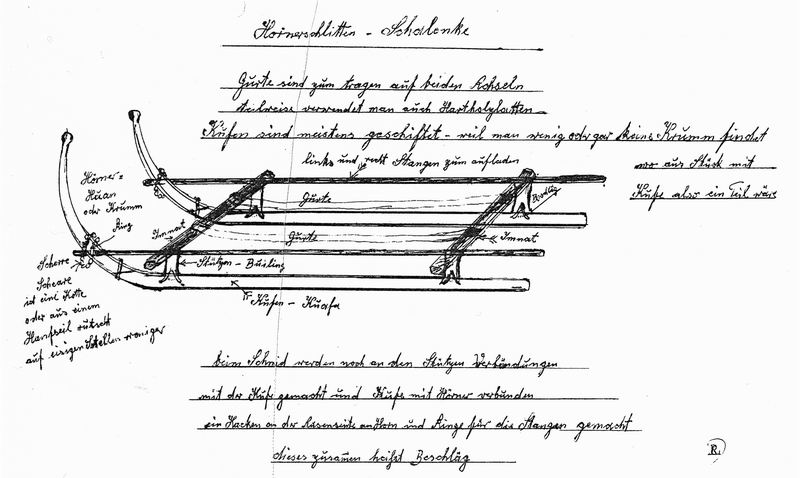 Hörnerschlitten - Schalonke
Gurte sind zum tragen auf beiden Achseln
teilweise verwendet man auch Hartholzlatten
Kufen sind meistens geschiftet - weil man wenig oder gar keine Krumm findet
wo aus Stück mit
Kufe also ein Teil wäre
links und recht Stangen zum aufladen
Hörner =
Huan
oder Krumm
Ring
Gurte
Gurte
Immat
Immat
Stützen - Busling
Buslig
Kufen - Kuafa
Scherre
Scheare
ist eine Kette
oder aus einem
Hanfseil rutscht
auf eisigen Stellen weniger
beim Schmid werden noch an den Stützen Verbindungen
mit der Kufe gemacht und Kufe mit Hörner verbunden
ein Hacken an der Aasenseite an Horn und Ringe für die Stangen gemacht
dieses zusamen heißt Beschläg
R.